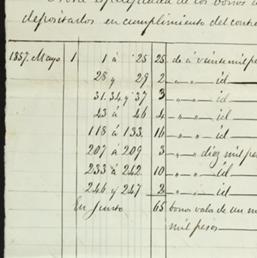 de los bonos
depositarlos en cumplimiento del contr
1857. Mayo 1. 1 á 25 25 de á veinte mil pe
28 y 29 2 " " id
31. 34 y 37 3 " " id
43 á 46 4 " " id
118 á 133 16 " " id
207 á 209 3 " " diez mil pe
233 á 242 10 " " id
246 y 247 2 " " id
En junto 65 bonos vala de un m
mil pesos